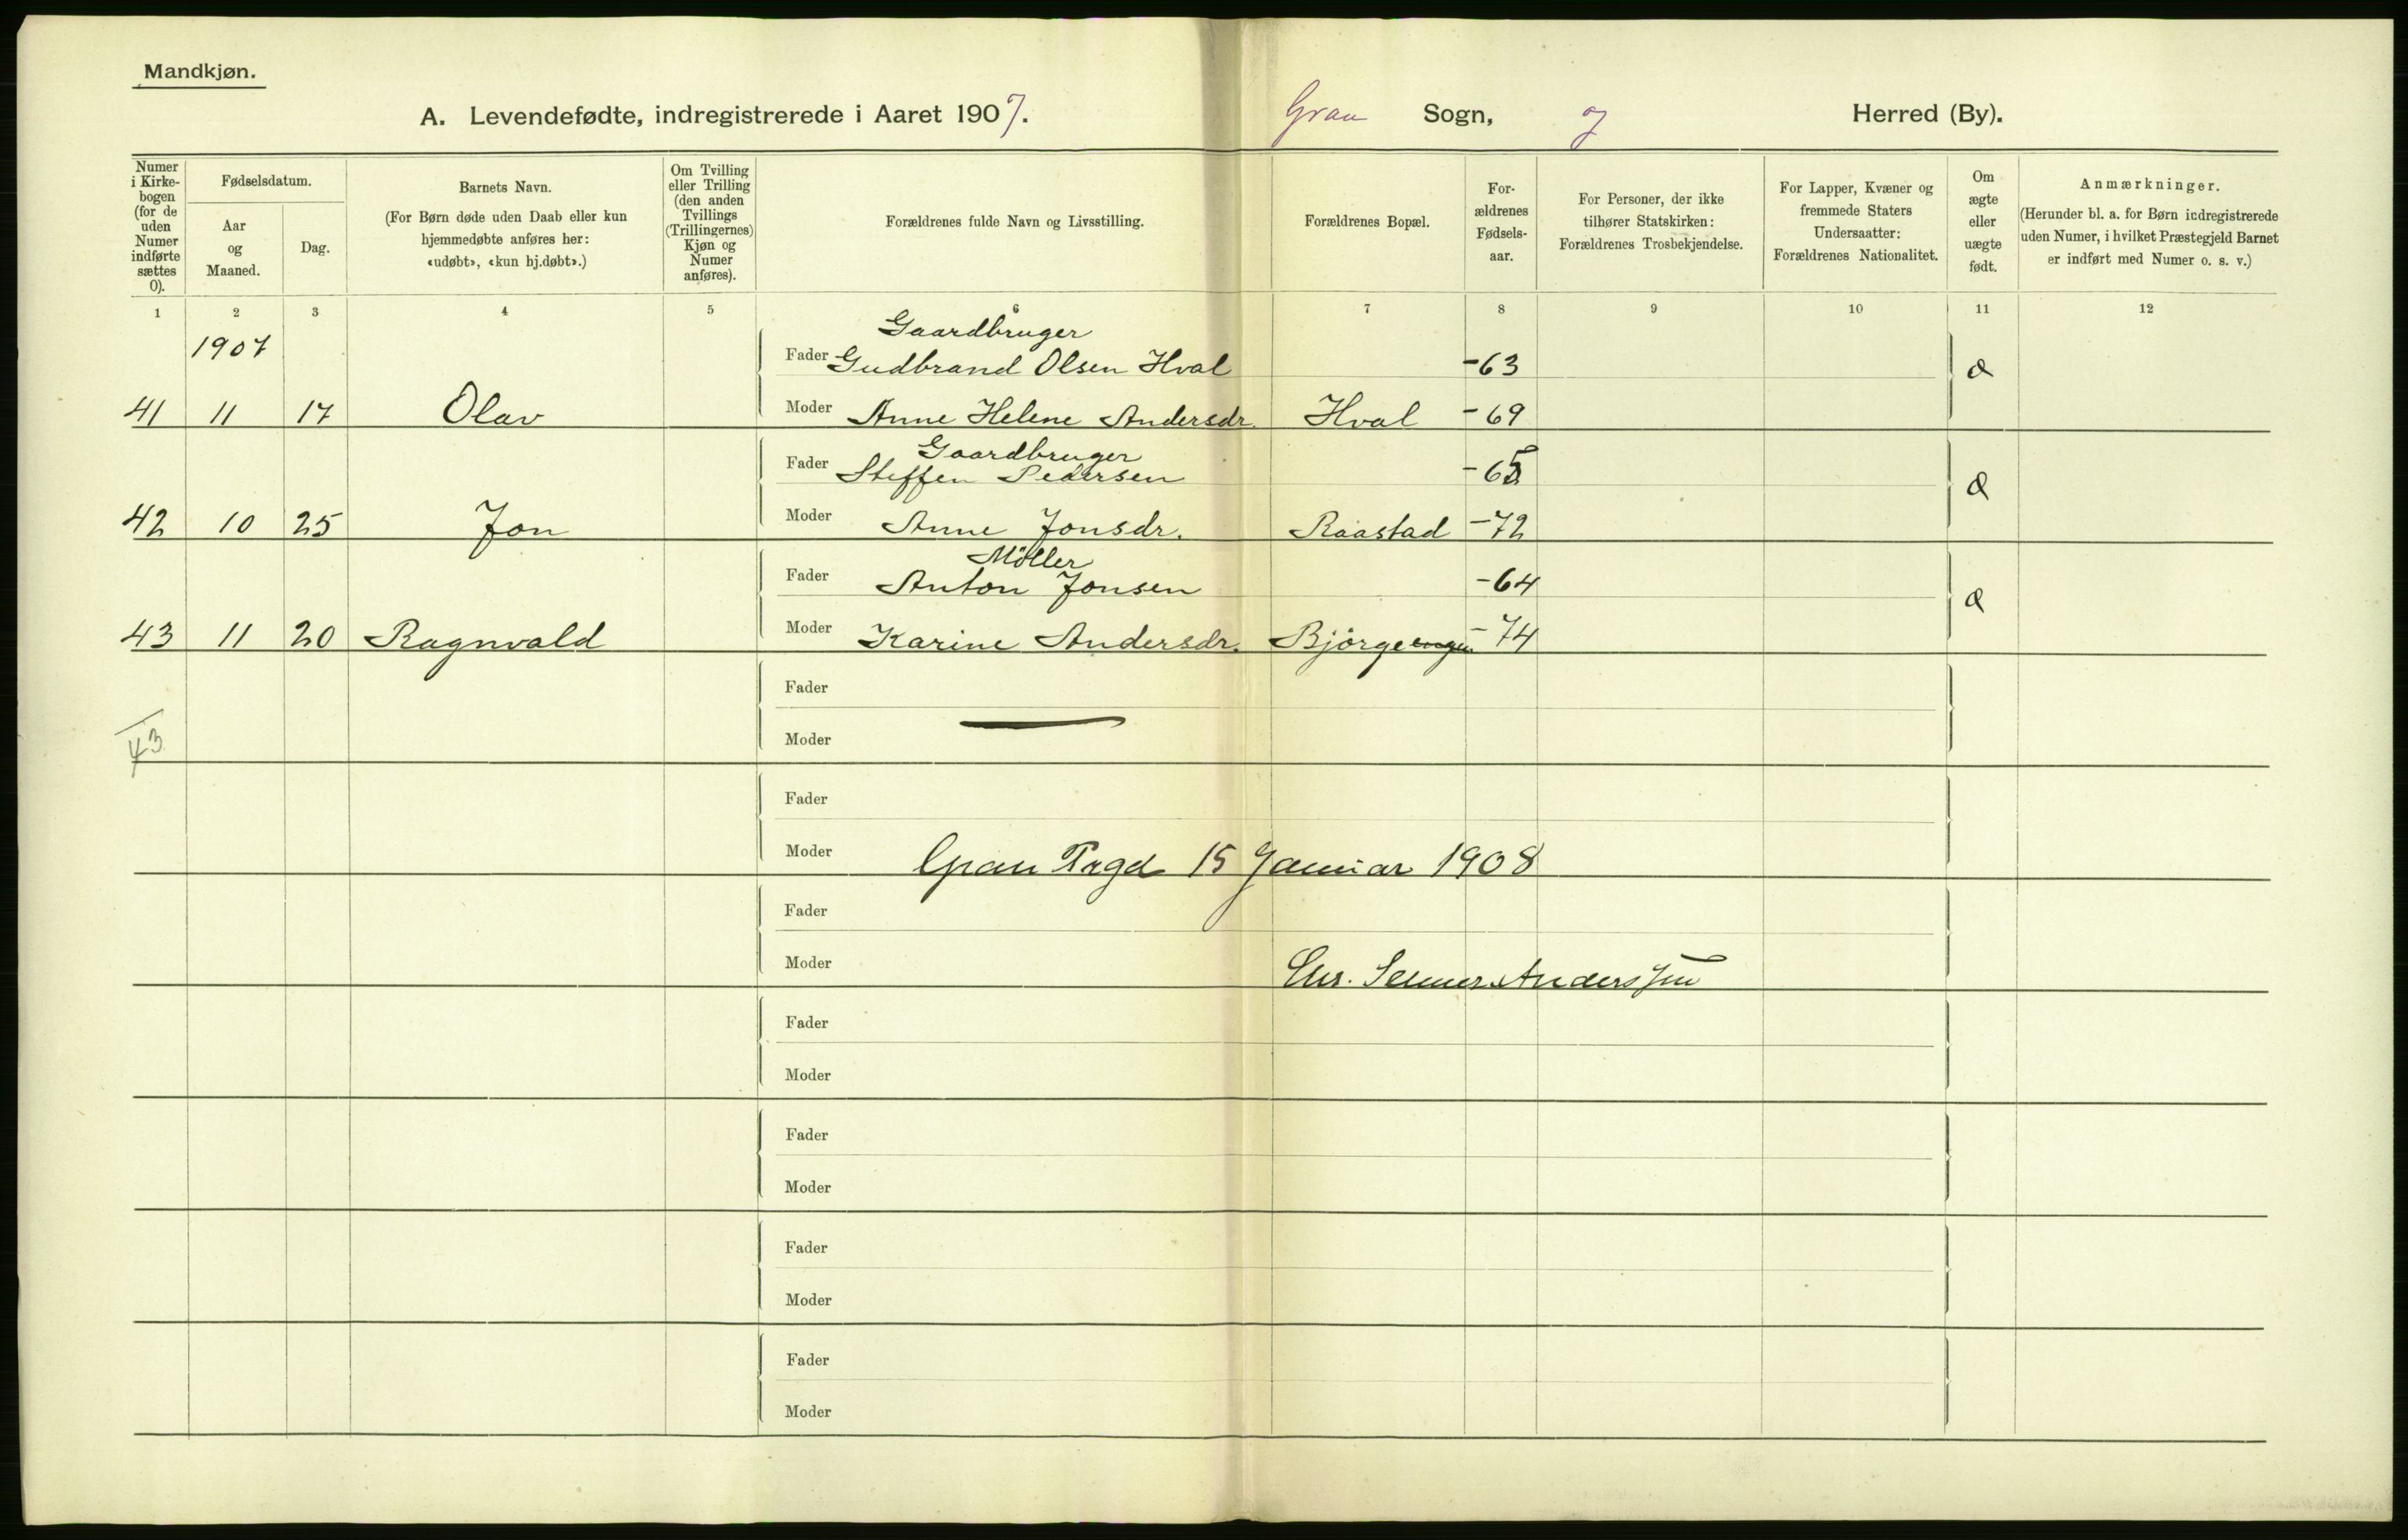 Mandkjøn.
A. Levendefødte, indregistrerede i Aaret 1907. Gran Sogn, og Herred (By).
Numer i Kirkebogen (for de uden Numer indførte sættes 0).
Fødselsdatum.
Aar og Maaned.
Dag.
Barnets Navn.
(For Børn døde uden Daab eller kun hjemmedøbte anføres her: «udøbt», «kun hj.døbt».)
Om Tvilling eller Trilling (den anden Tvillings (Trillingernes) Kjøn og Numer anføres).
Forældrenes fulde Navn og Livsstilling.
Forældrenes Bopæl.
Forældrenes Fødselsaar.
For Personer, der ikke tilhører Statskirken: Forældrenes Trosbekjendelse.
For Lapper, Kvæner og fremmede Staters Undersaatter: Forældrenes Nationalitet.
Om ægte eller uægte født.
Anmærkninger.
(Herunder bl. a. for Børn indregistrerede uden Numer, i hvilket Præstegjeld Barnet er indført med Numer o. s. v.)
1 2 3 4 5 6 7 8 9 10 11 12
1907
Gaardbruger
Fader Gudbrand Olsen Hval -63
41 11 17 Olav Moder Anne Helene Andersdr. Hval -69
Gaardbruger
Fader Steffen Pedersen -65
42 10 25 Jon Moder Anne Jonsdr. Raastad -72
Möller
Fader Anton Jonsen -64
43 11 20 Ragnvald Moder Karine Andersdr. Björgeengen -74
Fader
43
Moder
Fader
Moder Gran Prgd 15 Januar 1908
Fader
Moder Chr. Senner Anderssen
Fader
Moder
Fader
Moder
Fader
Moder
Fader
Moder